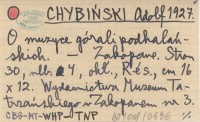 CHYBIŃSKI Adolf 1927.
O muzyce górali podhalań-
skich. Zakopane. Stron
30, nlb. 4, okt., Rés., cm 16
x 12. Wydawnictwo Muzeum Ta-
trzańskiego w Zakopanem nr. 3.
CBG-MT-WHP-TNP